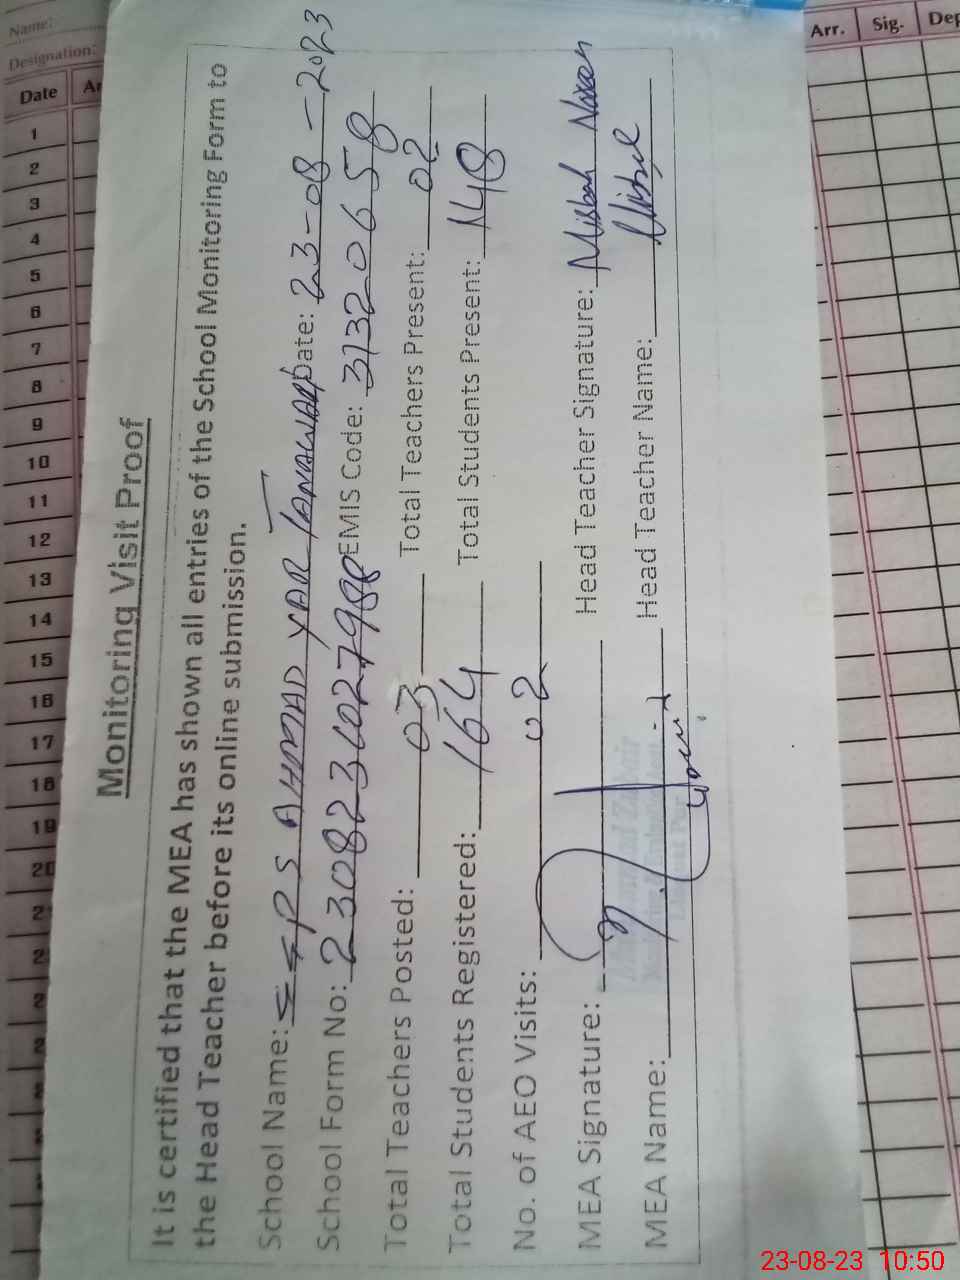 Name:
Designation:
Date
Arr. Sig. Dep
1
2
3
4
5
6
7
8
9
10
11
12
13
14
15
16
17
18
19
20
2
2
2
2
Monitoring Visit Proof
It is certified that the MEA has shown all entries of the School Monitoring Form to
the Head Teacher before its online submission.
School Name: PS AHMAD YAR TANAWARI Date: 23-08-2023
School Form No: EMIS Code: 31320658
Total Teachers Posted: 03 Total Teachers Present: 02
Total Students Registered: 164 Total Students Present: 148
No. of AEO Visits: 02
MEA Signature: Head Teacher Signature: Misbah
MEA Name: Head Teacher Name:
23-08-23 10:50